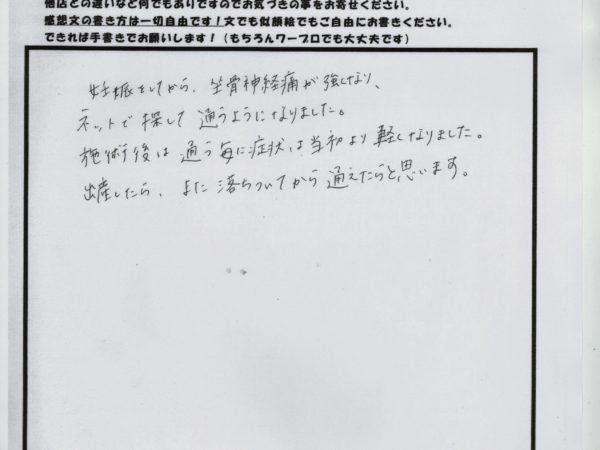 他店との違いなど何でもありですのでお気づきの事をお寄せください。
感想文の書き方は一切自由です！文でも似顔絵でもご自由にお書きください。
できれば手書きでお願いします！（もちろんワープロでも大丈夫です）
妊娠をしてから、坐骨神経痛が強くなり、
ネットで探して通うようになりました。
施術後は通う毎に症状は当初より軽くなりました。
出産したら、また落ちついてから通えたらと思います。